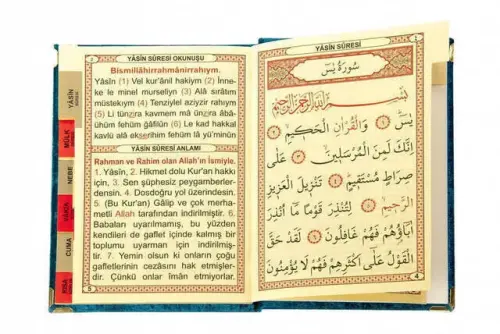 YÂSÎN SÛRESİ OKUNUŞU
Bismillâhirrahmânirrahıym.
Yâsîn (1) Vel kur'ânil hakiym (2) İnne-
ke le minel murseliyn (3) Alâ sırâtım
müstekıym (4) Tenziylel aziyzir rahıym
(5) Li tünzira kavmem mâ ünzira âbâ-
ühüm fehüm ğâfilûn (6) Le kad hakkal
kavlü alâ ekserihim fehüm lâ yü'minûn
YÂSÎN SÛRESİ ANLAMI
Rahman ve Rahim olan Allah'ın İsmiyle.
1. Yâsîn, 2. Hikmet dolu Kur'an hakkı
için, 3. Sen şüphesiz peygamberler-
densin. 4. Dosdoğru yol üzerindesin.
5. (Bu Kur'an) Gâlip ve çok merha-
metli Allah tarafından indirilmiştir. 6.
Babaları uyarılmamış, bu yüzden
kendileri de gaflet içinde kalmış bir
toplumu uyarman için indirilmiş-
tir. 7. Yemin olsun ki onların çoğu
gafletlerinin cezâsını hak etmişler-
dir. Çünkü onlar îman etmiyorlar.
YÂSÎN
MÜLK
NEBE
VÂKIA
CUMA
KISA
YÂSÎN SÛRESİ
سُورَةُ يٰسٓ
بِسْمِ اللّٰهِ الرَّحْمٰنِ الرَّحِيمِ
يٰسٓ ﴿١﴾ وَالْقُرْاٰنِ الْحَكِيمِ ﴿٢﴾
اِنَّكَ لَمِنَ الْمُرْسَلِينَ ﴿٣﴾ عَلٰى
صِرَاطٍ مُسْتَقِيمٍ ﴿٤﴾ تَنْزِيلَ الْعَزِيزِ
الرَّحِيمِ ﴿٥﴾ لِتُنْذِرَ قَوْمًا مَٓا اُنْذِرَ
اٰبَٓاؤُهُمْ فَهُمْ غَافِلُونَ ﴿٦﴾ لَقَدْ حَقَّ
الْقَوْلُ عَلٰٓى اَكْثَرِهِمْ فَهُمْ لَا يُؤْمِنُونَ
4